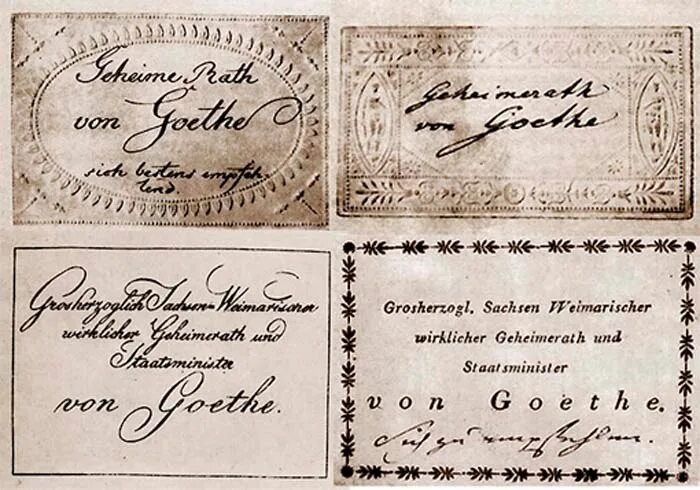 Geheime Rath
von Goethe
sich bestens empfeh-
lend.
Geheimerath
von Goethe
Grosherzoglich Sachsen-Weimarischer
wirklicher Geheimerath und
Staatsminister
von Goethe.
Grosherzogl. Sachsen Weimarischer
wirklicher Geheimerath und
Staatsminister
von Goethe.
Sich zu empfehlen.